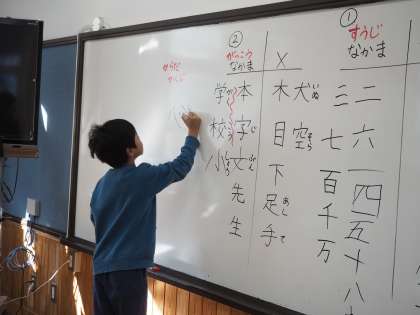 ①
すうじ
なかま
二六一四五十八
三七百千万
×
犬いぬ空そら
木目下足あし手て
②
がっこう
なかま
本字じ文ぶん先生
学がく校こう小しょう
からだ